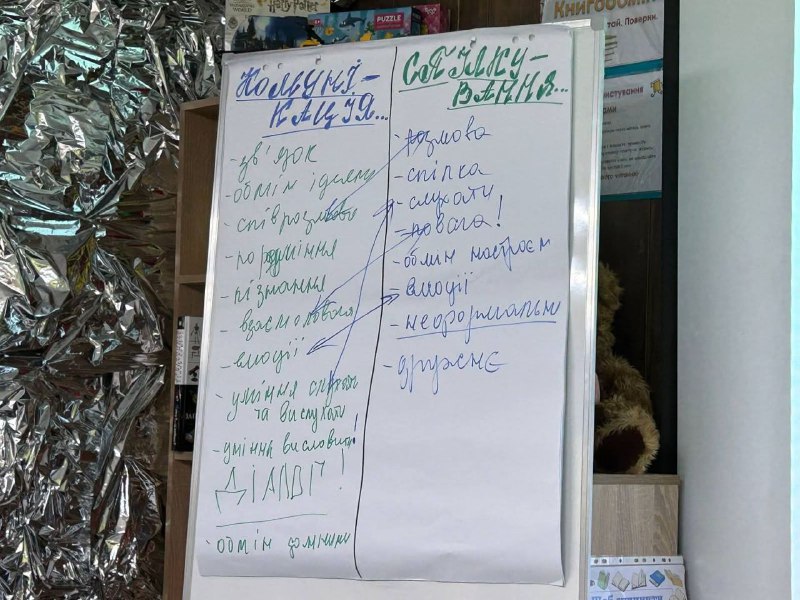 Harry Potter
PUZZLE
Книгообмін
КОМУНІ-
КАЦІЯ...
- зв'язок
- обмін ідеями
- співрозмова
- порозуміння
- пізнання
- взаємоповага
- емоції
- уміння слухати
та вислухати
- уміння висловити!
ДІАЛОГ!
- обмін думками
СПІЛКУ-
ВАННЯ...
- розмова
- спілка
- слухати
- повага!
- обмін настроєм
- емоції
- неформальне
- дружнє